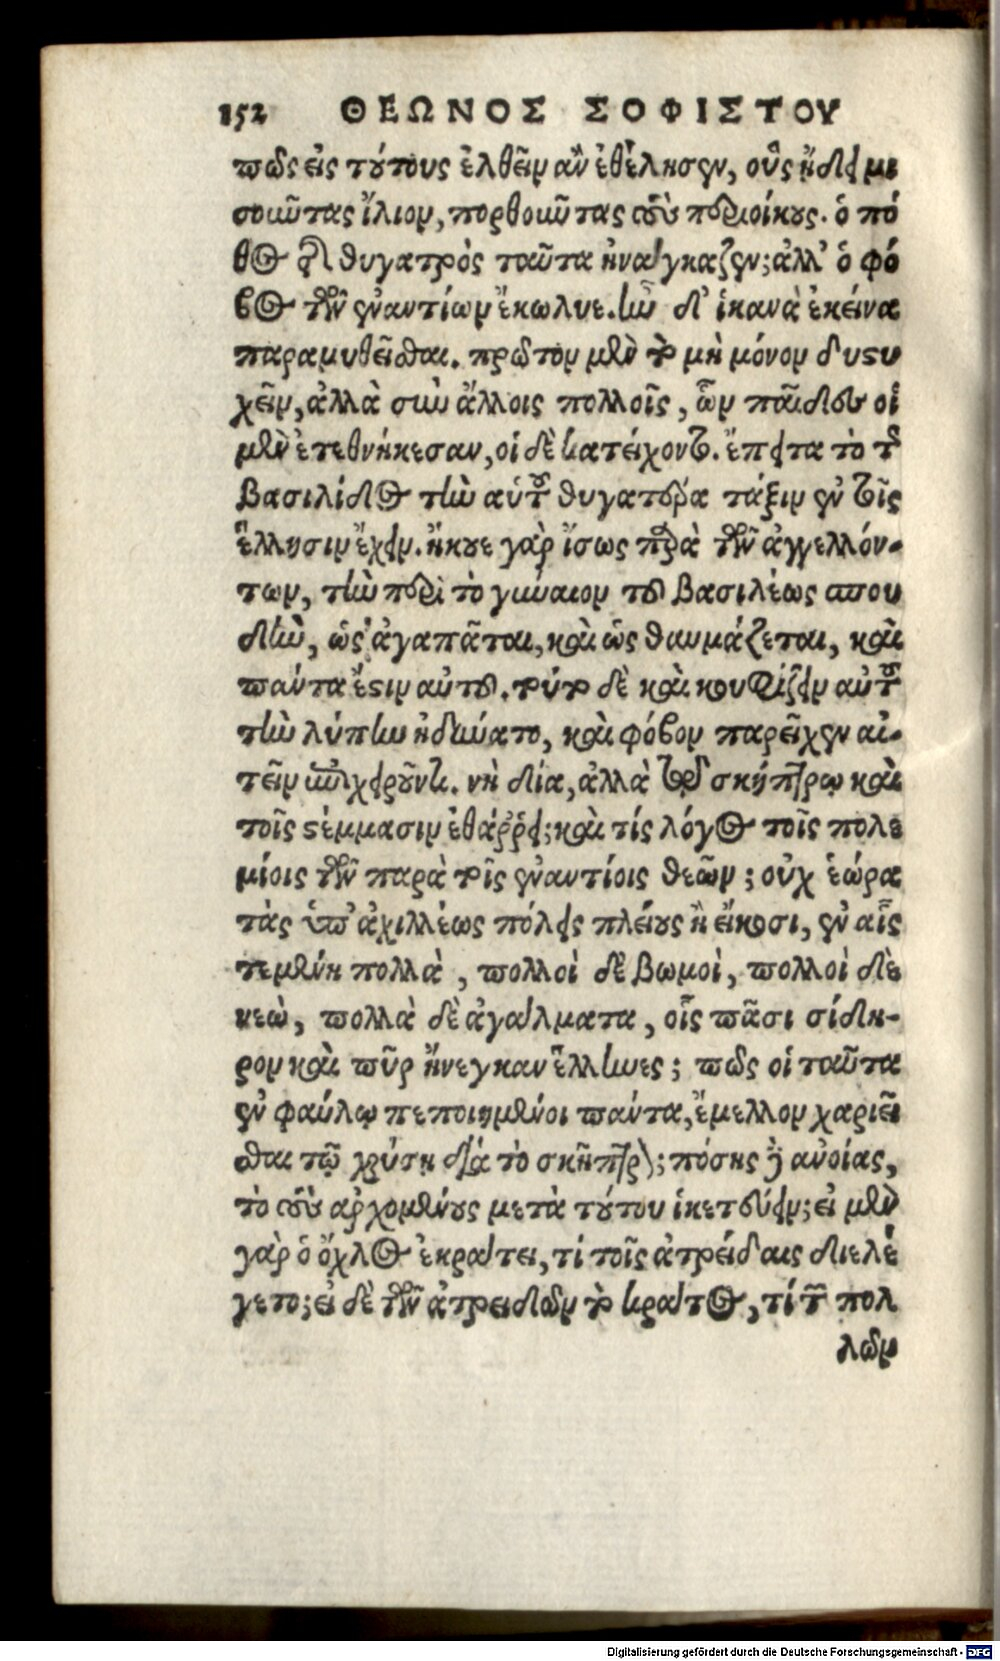 152 ΘΕΩΝΟΣ ΣΟΦΙΣΤΟΥ
πῶς εἰς τούτους ἐλθεῖν ἂν ἐθέλησεν, οὓς ᾔδει μι
σοιῦτας ἴλιον, πορθοιῦτας τοὺς περιοίκους. ὁ πό
θος τῆς θυγατρὸς ταῦτα ἠνάγκαζεν; ἀλλ' ὁ φό
βος τῶν ἐναντίων ἐκώλυε. ἦν δ' ἱκανὰ ἐκεῖνα
παραμυθεῖσθαι. πρῶτον μὲν τὸ μὴ μόνον δυστυ
χεῖν, ἀλλὰ σὺν ἄλλοις πολλοῖς, ὧν παῖδες οἱ
μὲν ἐτεθνήκεσαν, οἱ δὲ κατείχοντο. ἔπειτα τὸ τῆς
βασιλίδος τὴν αὑτοῦ θυγατέρα τάξιν ἐν τοῖς
ἕλλησιν ἔχειν. ἤκουε γὰρ ἴσως παρὰ τῶν ἀγγελλόν-
των, τὴν περὶ τὸ γύναιον τοῦ βασιλέως σπου
δὴν, ὡς ἀγαπᾶται, καὶ ὡς θαυμάζεται, καὶ
πάντα ἔστιν αὐτῷ. τοῦτο δὲ καὶ κουφίζειν αὐτοῦ
τὴν λύπην ἠδύνατο, καὶ φόβον παρεῖχεν αἰ-
τεῖν ἐπιχειροῦντι. νὴ δία, ἀλλὰ τῷ σκήπτρῳ καὶ
τοῖς στέμμασιν ἐθάῤῥει; καὶ τίς λόγος τοῖς πολε
μίοις τῶν παρὰ τοῖς ἐναντίοις θεῶν; οὐχ ἑώρα
τὰς ὑπ' ἀχιλλέως πόλεις πλείους ἢ εἴκοσι, ἐν αἷς
τεμένη πολλὰ, πολλοὶ δὲ βωμοὶ, πολλοὶ δὲ
νεὼ, πολλὰ δὲ ἀγάλματα, οἷς πᾶσι σίδη-
ρον καὶ πῦρ ἤνεγκαν ἕλληνες; πῶς οἱ ταῦτα
ἐν φαύλῳ πεποιημένοι πάντα, ἔμελλον χαριεῖ
σθαι τῷ χρύσῃ διὰ τὸ σκῆπτρον; πόσης δὲ ἀνοίας,
τὸ τοὺς ἀρχομένους μετὰ τούτου ἱκετεύειν; εἰ μὲν
γὰρ ὁ ὄχλος ἐκράτει, τί τοῖς ἀτρείδαις διελέ
γετο; εἰ δὲ τῶν ἀτρειδῶν τὸ κράτος, τί τῶν πολ
λῶν
Digitalisierung gefördert durch die Deutsche Forschungsgemeinschaft - DFG